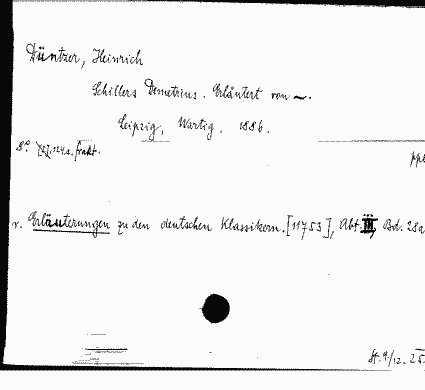 Düntzer, Heinrich
Schillers Demetrius. Erläutert von ~.
Leipzig, Wartig, 1886.
8° 124 s. frakt.
ppe
v. Erläuterungen zu den deutschen Klassikern. [11753], Abt. III, Bd. 28a
St. 9/12. 25.